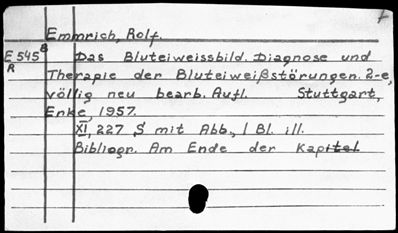 Emmrich, Rolf.
E 545 B
R
Das Bluteiweissbild. Diagnose und
Therapie der Bluteiweißstörungen. 2-e,
völlig neu bearb. Aufl. Stuttgart,
Enke, 1957.
XI, 227 S mit Abb., 1 Bl. ill.
Bibliogr. Am Ende der Kapitel